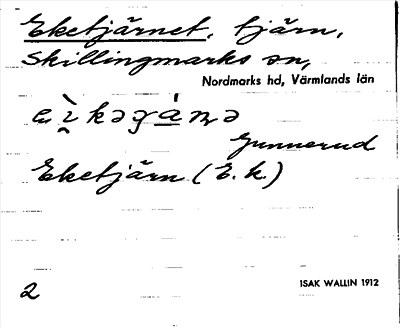 Eketjärnet, tjärn,
Skillingmarks sn,
Nordmarks hd, Värmlands län
Gunnerud
Eketjärn (E.k.)
2
ISAK WALLIN 1912